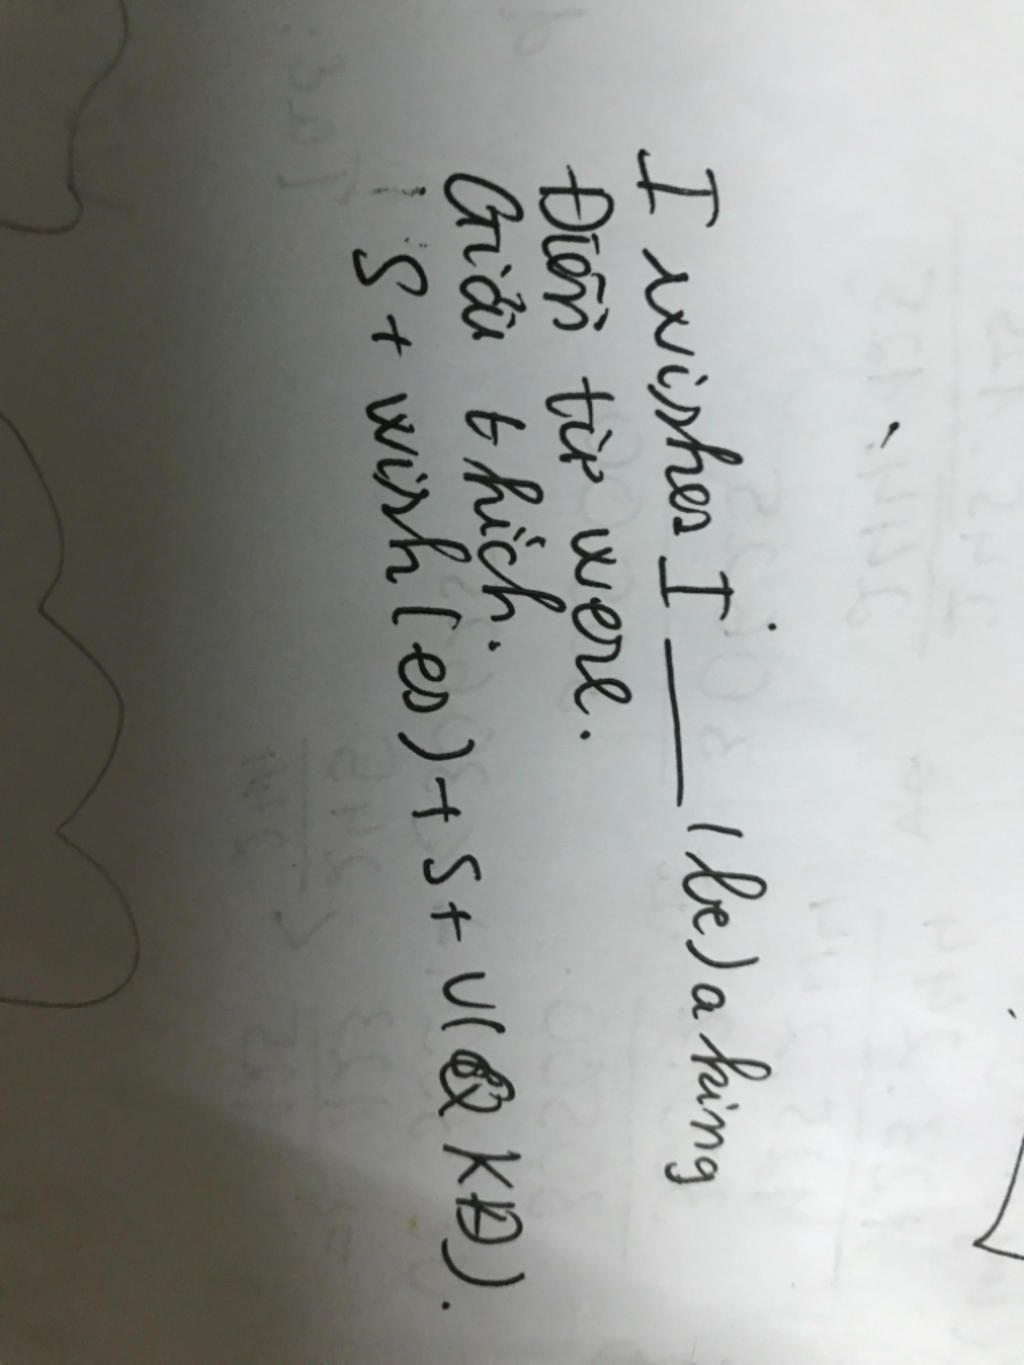 I wishes I ____ (be) a king
Điền từ were.
Giải thích.
S + wish(es) + S + V(QKĐ).